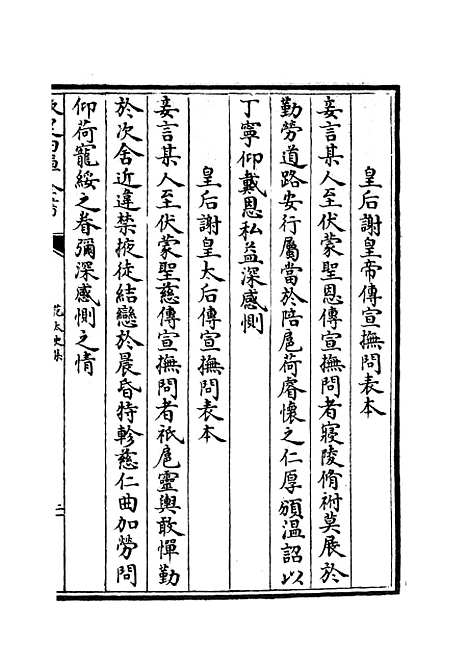 皇后謝皇帝傳宣撫問表本
妾言某人至伏蒙聖恩傳宣撫問者寢陵脩祔莫展於
勤勞道路安行屬當於陪扈荷睿懷之仁厚頒溫詔以
丁寧仰戴恩私益深感惻
皇后謝皇太后傳宣撫問表本
妾言某人至伏蒙聖慈傳宣撫問者祇扈靈輿敢憚勤
於次舍近違禁掖徒結戀於晨昏特軫慈仁曲加勞問
仰荷寵綏之眷彌深感惻之情
范太史集
二